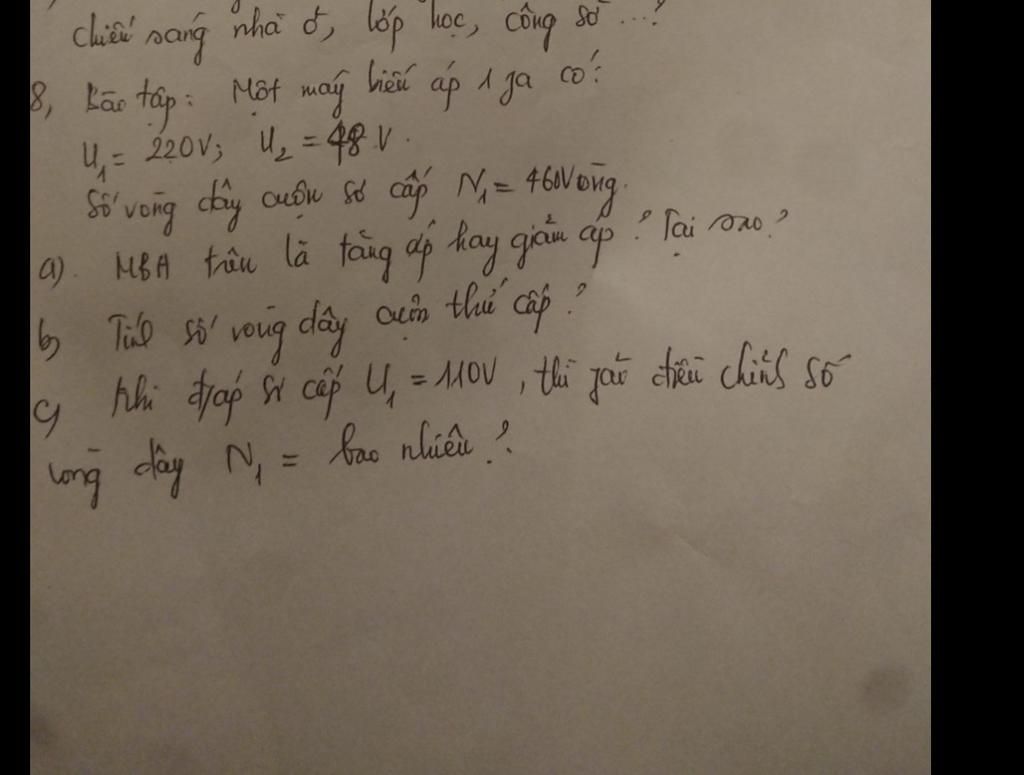 chiếu sáng nhà ở, lớp học, công sở ...?
8, Bài tập: Một máy biến áp 1 pha có:
U₁ = 220V; U₂ = 48 V.
Số vòng dây cuộn sơ cấp N₁ = 460 vòng.
a). MBA trên là tăng áp hay giảm áp? Tại sao?
b, Tính số vòng dây cuộn thứ cấp?
c, Khi đ/áp sơ cấp U₁ = 110V, thì phải điều chỉnh số
vòng dây N₁ = bao nhiêu?